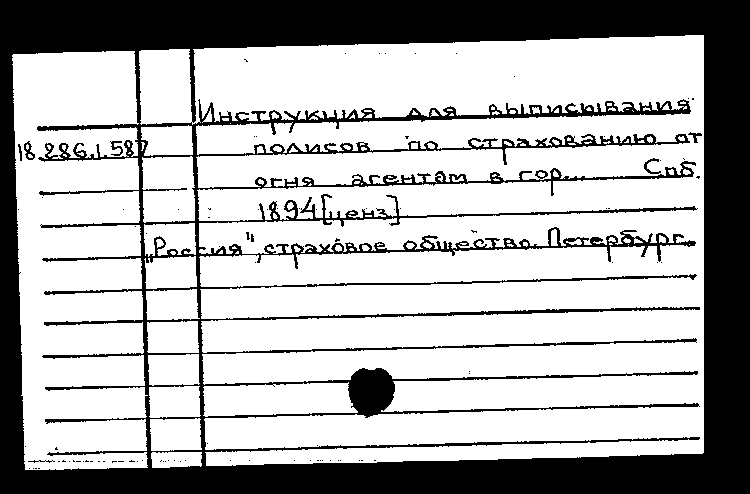 Инструкция для выписывания
18.286.1.587 полисов по страхованию от
огня агентам в гор... Спб.
1894 [ценз]
„Россия", страховое общество. Петербург.